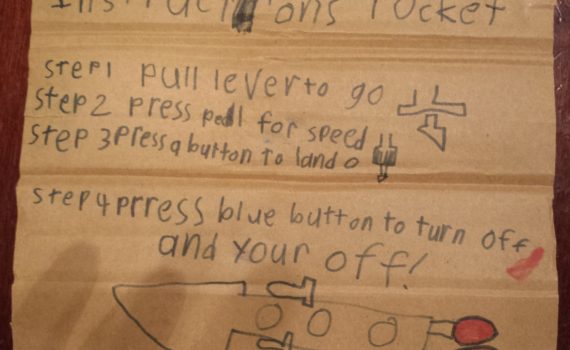 Instructions rocket
step1 pull lever to go
step 2 press pedl for speed
step 3 press a button to land
step 4 prress blue button to turn off
and your off!